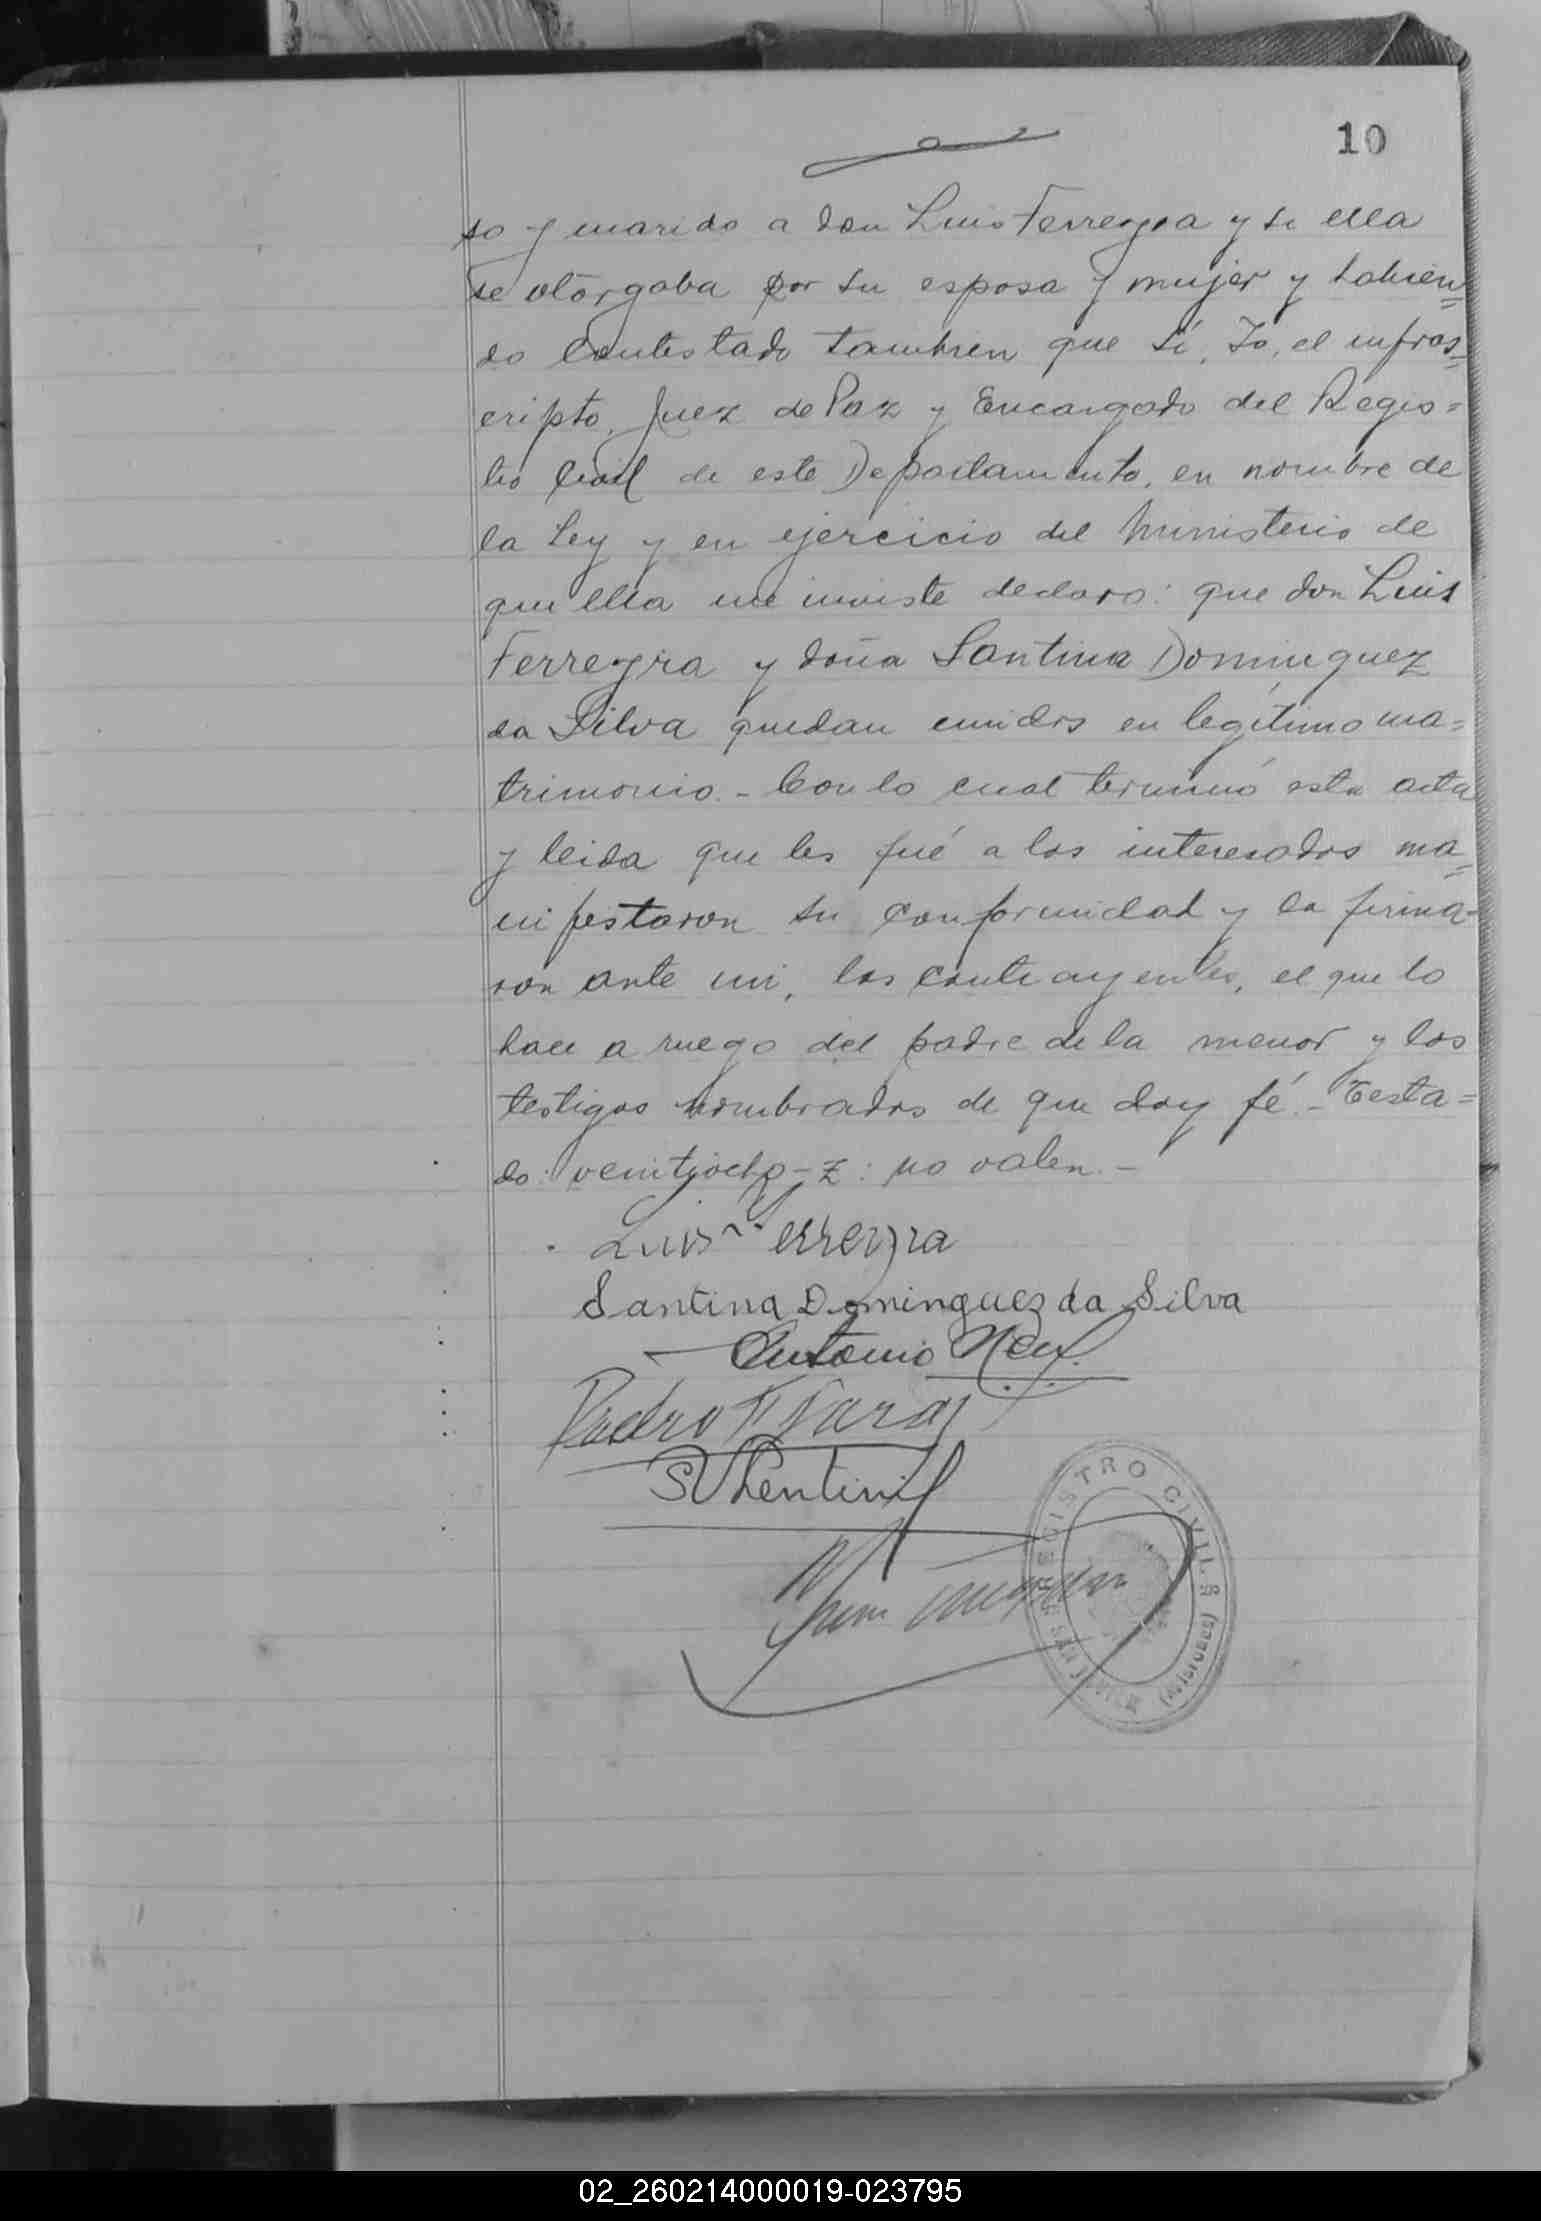 10
so y marido a don Luis Ferreyra y si ella
se otorgaba por su esposa y mujer y habien=
do contestado tambien que sí, Yo, el infras=
cripto, Juez de Paz y Encargado del Regis=
tro Civil de este Departamento, en nombre de
la Ley y en ejercicio del Ministerio de
que ella me inviste declaro: que don Luis
Ferreyra y doña Santina Dominguez
da Silva quedan unidos en legítimo ma=
trimonio.- Con lo cual terminó esta acta
y leida que les fué a los interesados ma=
nifestaron su conformidad y la firma-
ron ante mi, los contrayentes, el que lo
hace a ruego del padre de la menor y los
testigos nombrados de que doy fé.- Testa=
do: venitiocho-z: no valen.-
Luis Ferreyra
Santina Dominguez da Silva
Antonio
Pedro
REGISTRO CIVIL
(Misiones)
02_260214000019-023795